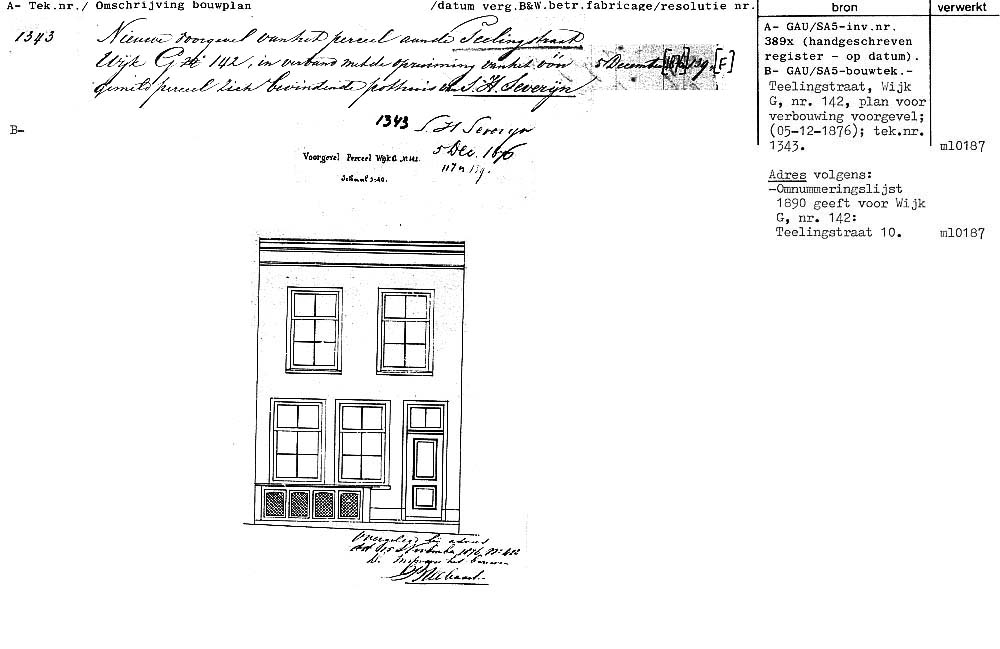 A- Tek.nr./ Omschrijving bouwplan /datum verg.B&W.betr.fabricage/resolutie nr. bron verwerkt
1343 Nieuwe voorgevel van het perceel aan de Teelingstraat
Wijk G No 142, in verband met de opruiming van het vóór 5 December 1876 [F]
gemeld perceel zich bevindende pothuis S. H. Severijn
B-
1343 S H Severijn
5 Dec. 1876
Voorgevel Perceel Wijk G. N 142.
Schaal 1:40.
A- GAU/SA5-inv.nr.
389x (handgeschreven
register - op datum).
B- GAU/SA5-bouwtek.-
Teelingstraat, Wijk
G, nr. 142, plan voor
verbouwing voorgevel;
(05-12-1876); tek.nr.
1343. ml0187
Adres volgens:
-Omnummeringslijst
1890 geeft voor Wijk
G, nr. 142:
Teelingstraat 10. ml0187
Overgelegd bij advies
dd 15 November 1876, No 412